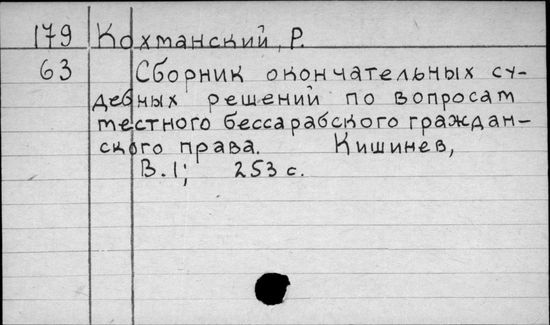 179 Кохманский, Р.
63 Сборник окончательных су-
дебных решений по вопросам
местного бессарабского граждан-
ского права. Кишинев,
В. 1; 253 с.